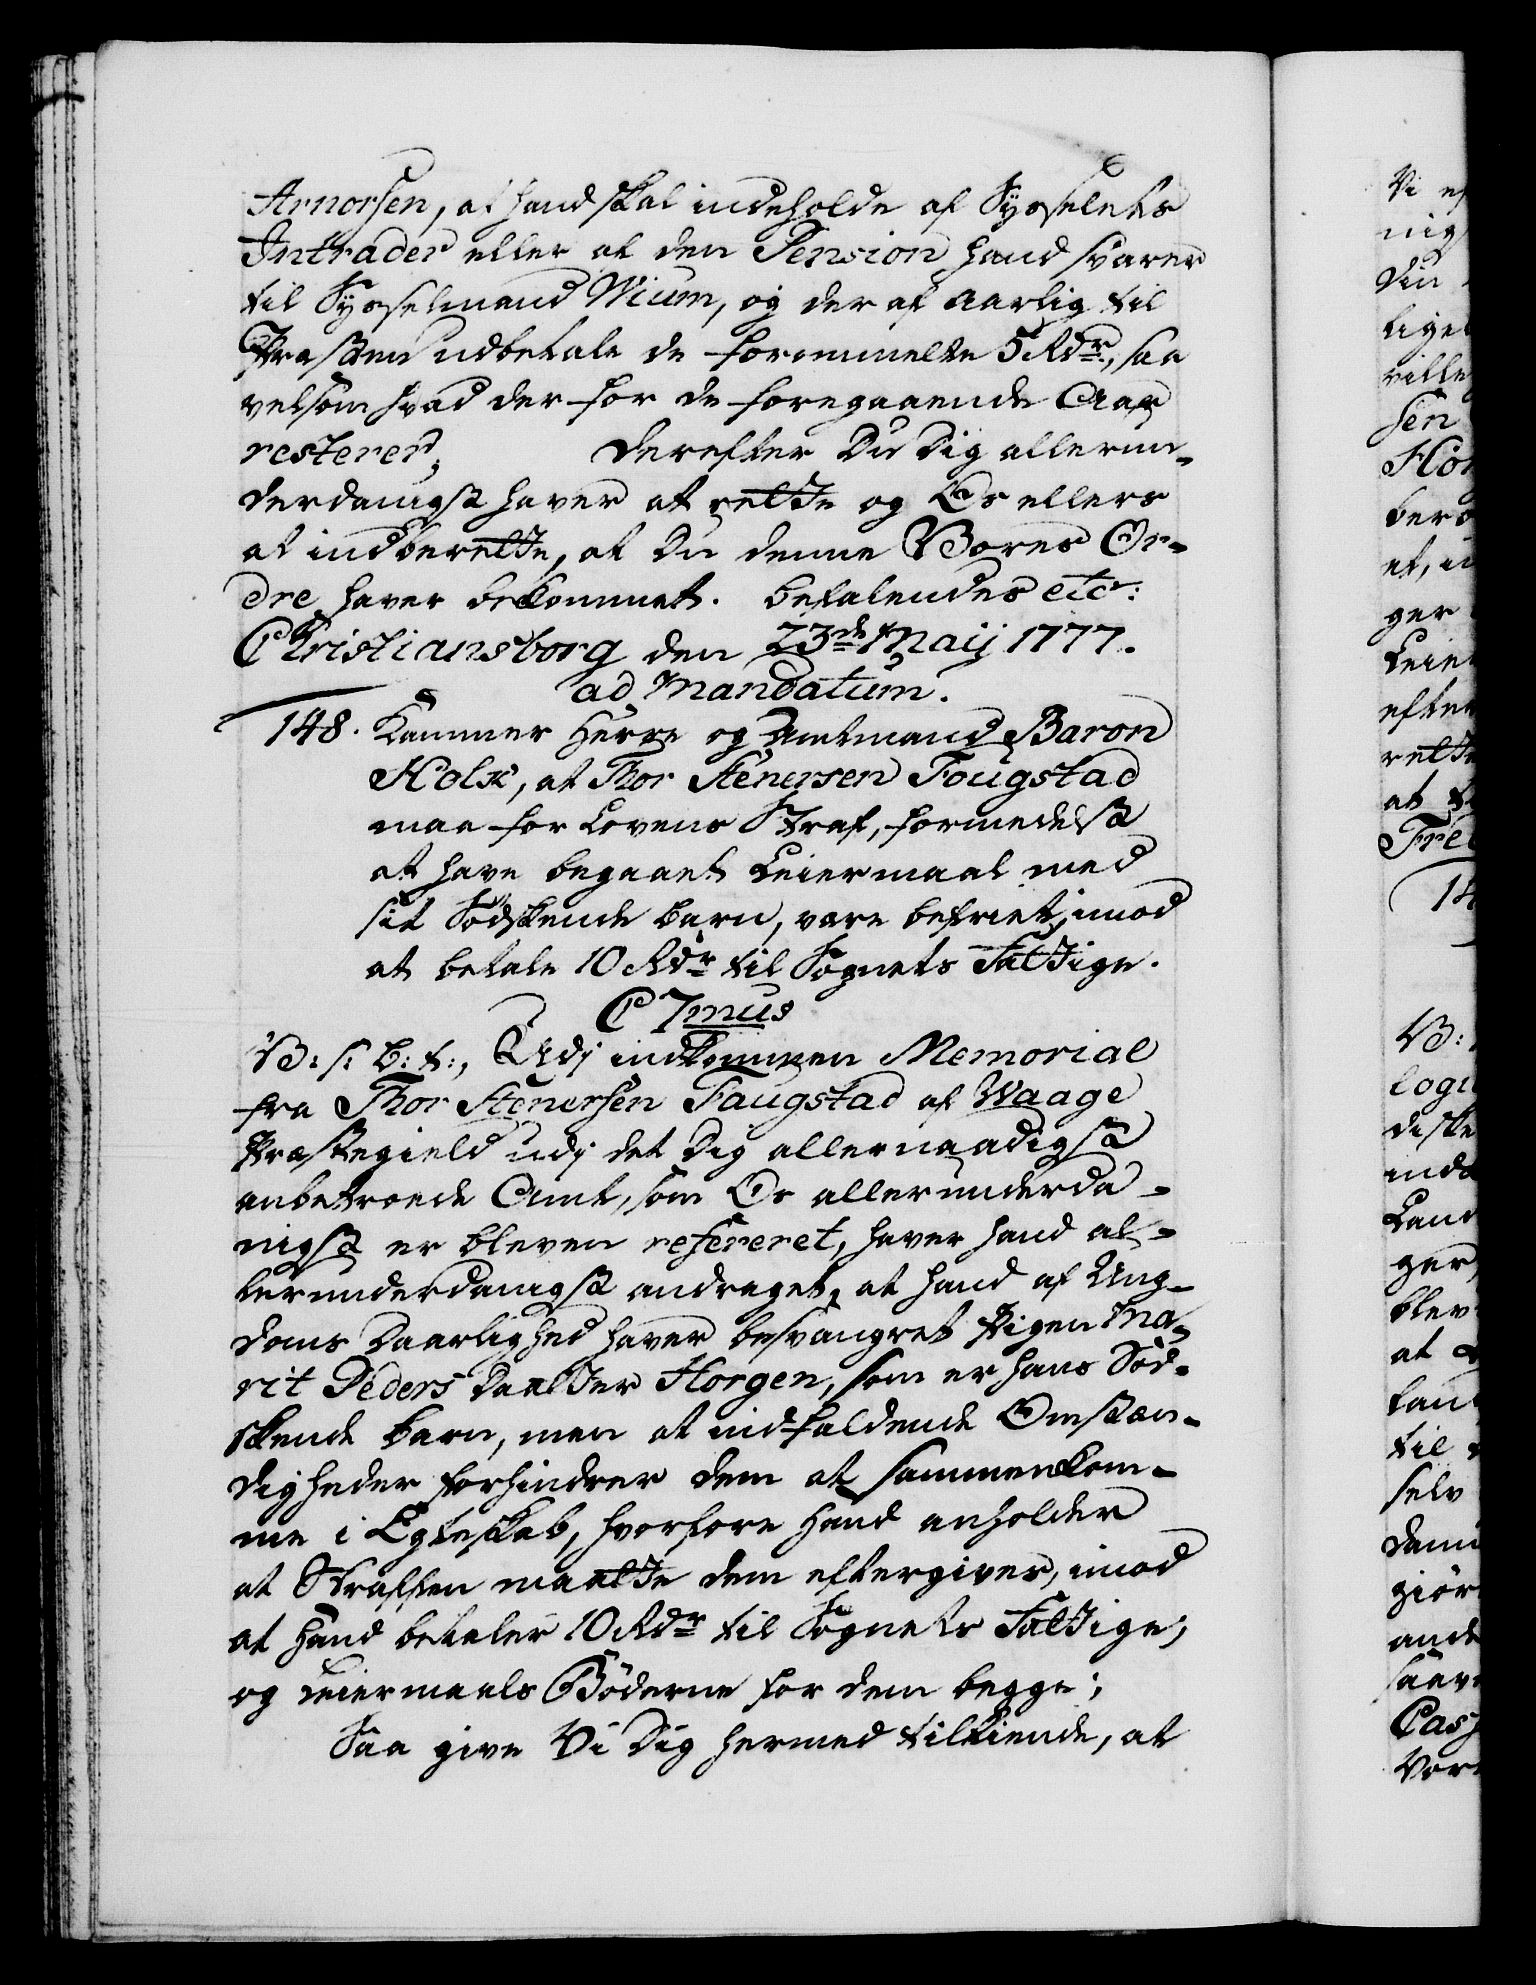 Arnorsen, at hand skal indeholde af Sysselets
Intrader eller at den Pension hand svarer
til Sysselmand Wium, og der af aarlig til
Præsten udbetale de forommelte 5 Rdr., saa
velsom hvad der for de foregaaende Aar
resterer; Derefter Du Dig allerun-
derdanigst haver at rette og Os ellers
at indberette, at Du denne Vores Or-
dre haver bekommet. Befalendes etc:
Christiansborg den 23de Maij 1777.
ad Mandatum.
148. Kammer Herre og Amtmand Baron
Holk, at Thor Stenersen Fougstad
maa for Lovens Straf, formedelst
at have begaaet Leiermaal med
sit Södskende Barn, være befriet, imod
at betale 10 Rdr til Sognets Fattige.
C 7mus
V: s: b: t:, Udj indkommen Memorial
fra Thor Stenersen Faugstad af Waage
Præstegield udj det Dig allernaadigst
anbetroede Amt, som Os allerunderda-
nigst er bleven refereret, haver hand al-
lerunderdanigst andraget, at hand af Ung-
doms Daarlighed haver besvangret Pigen Ma-
rit Peders Daatter Horgen, som er hans Söd-
skende Barn, men at indfaldende Omstæn-
digheder forhindrer dem at sammenkom-
me i Egteskab, hvorfore hand anholder
at Straffen maatte dem eftergives, imod
at hand betaler 10 Rdr til Sognets Fattige,
og Leiermaals Böderne for dem begge;
Saa give Vi Dig hermed tilkiende, at